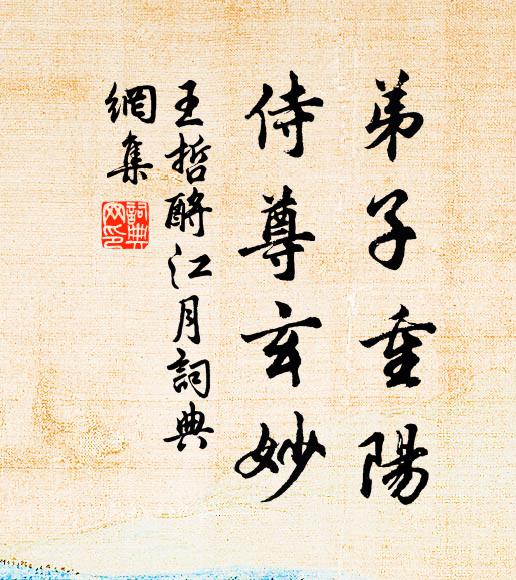 弟子重陽
侍尊玄妙
王哲酹江月詞典
網集
詞典
网印